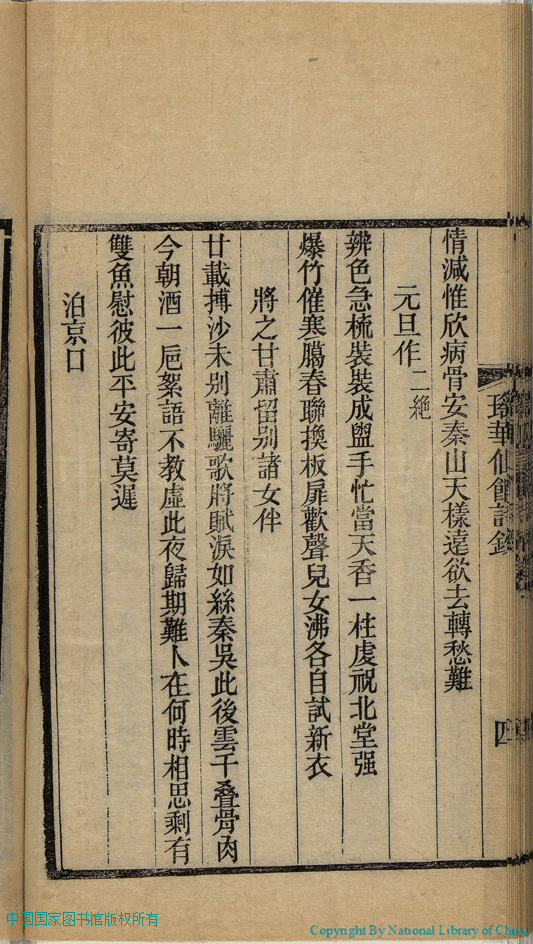 情減惟欣病骨安秦山天樣遠欲去轉愁難
元旦作二絶
辨色急梳裝裝成盥手忙當天香一柱虔祝北堂强
爆竹催寒臈春聯換板扉歡聲兒女沸各自試新衣
將之甘肅留别諸女伴
廿載摶沙未别離驪歌將賦淚如絲秦吳此後雲千叠骨肉
今朝酒一巵絮語不教虛此夜歸期難卜在何時相思剩有
雙魚慰彼此平安寄莫遲
泊京口
瑤華仙館詩鈔
四
中国国家图书馆版权所有
Copyright By National Library of China